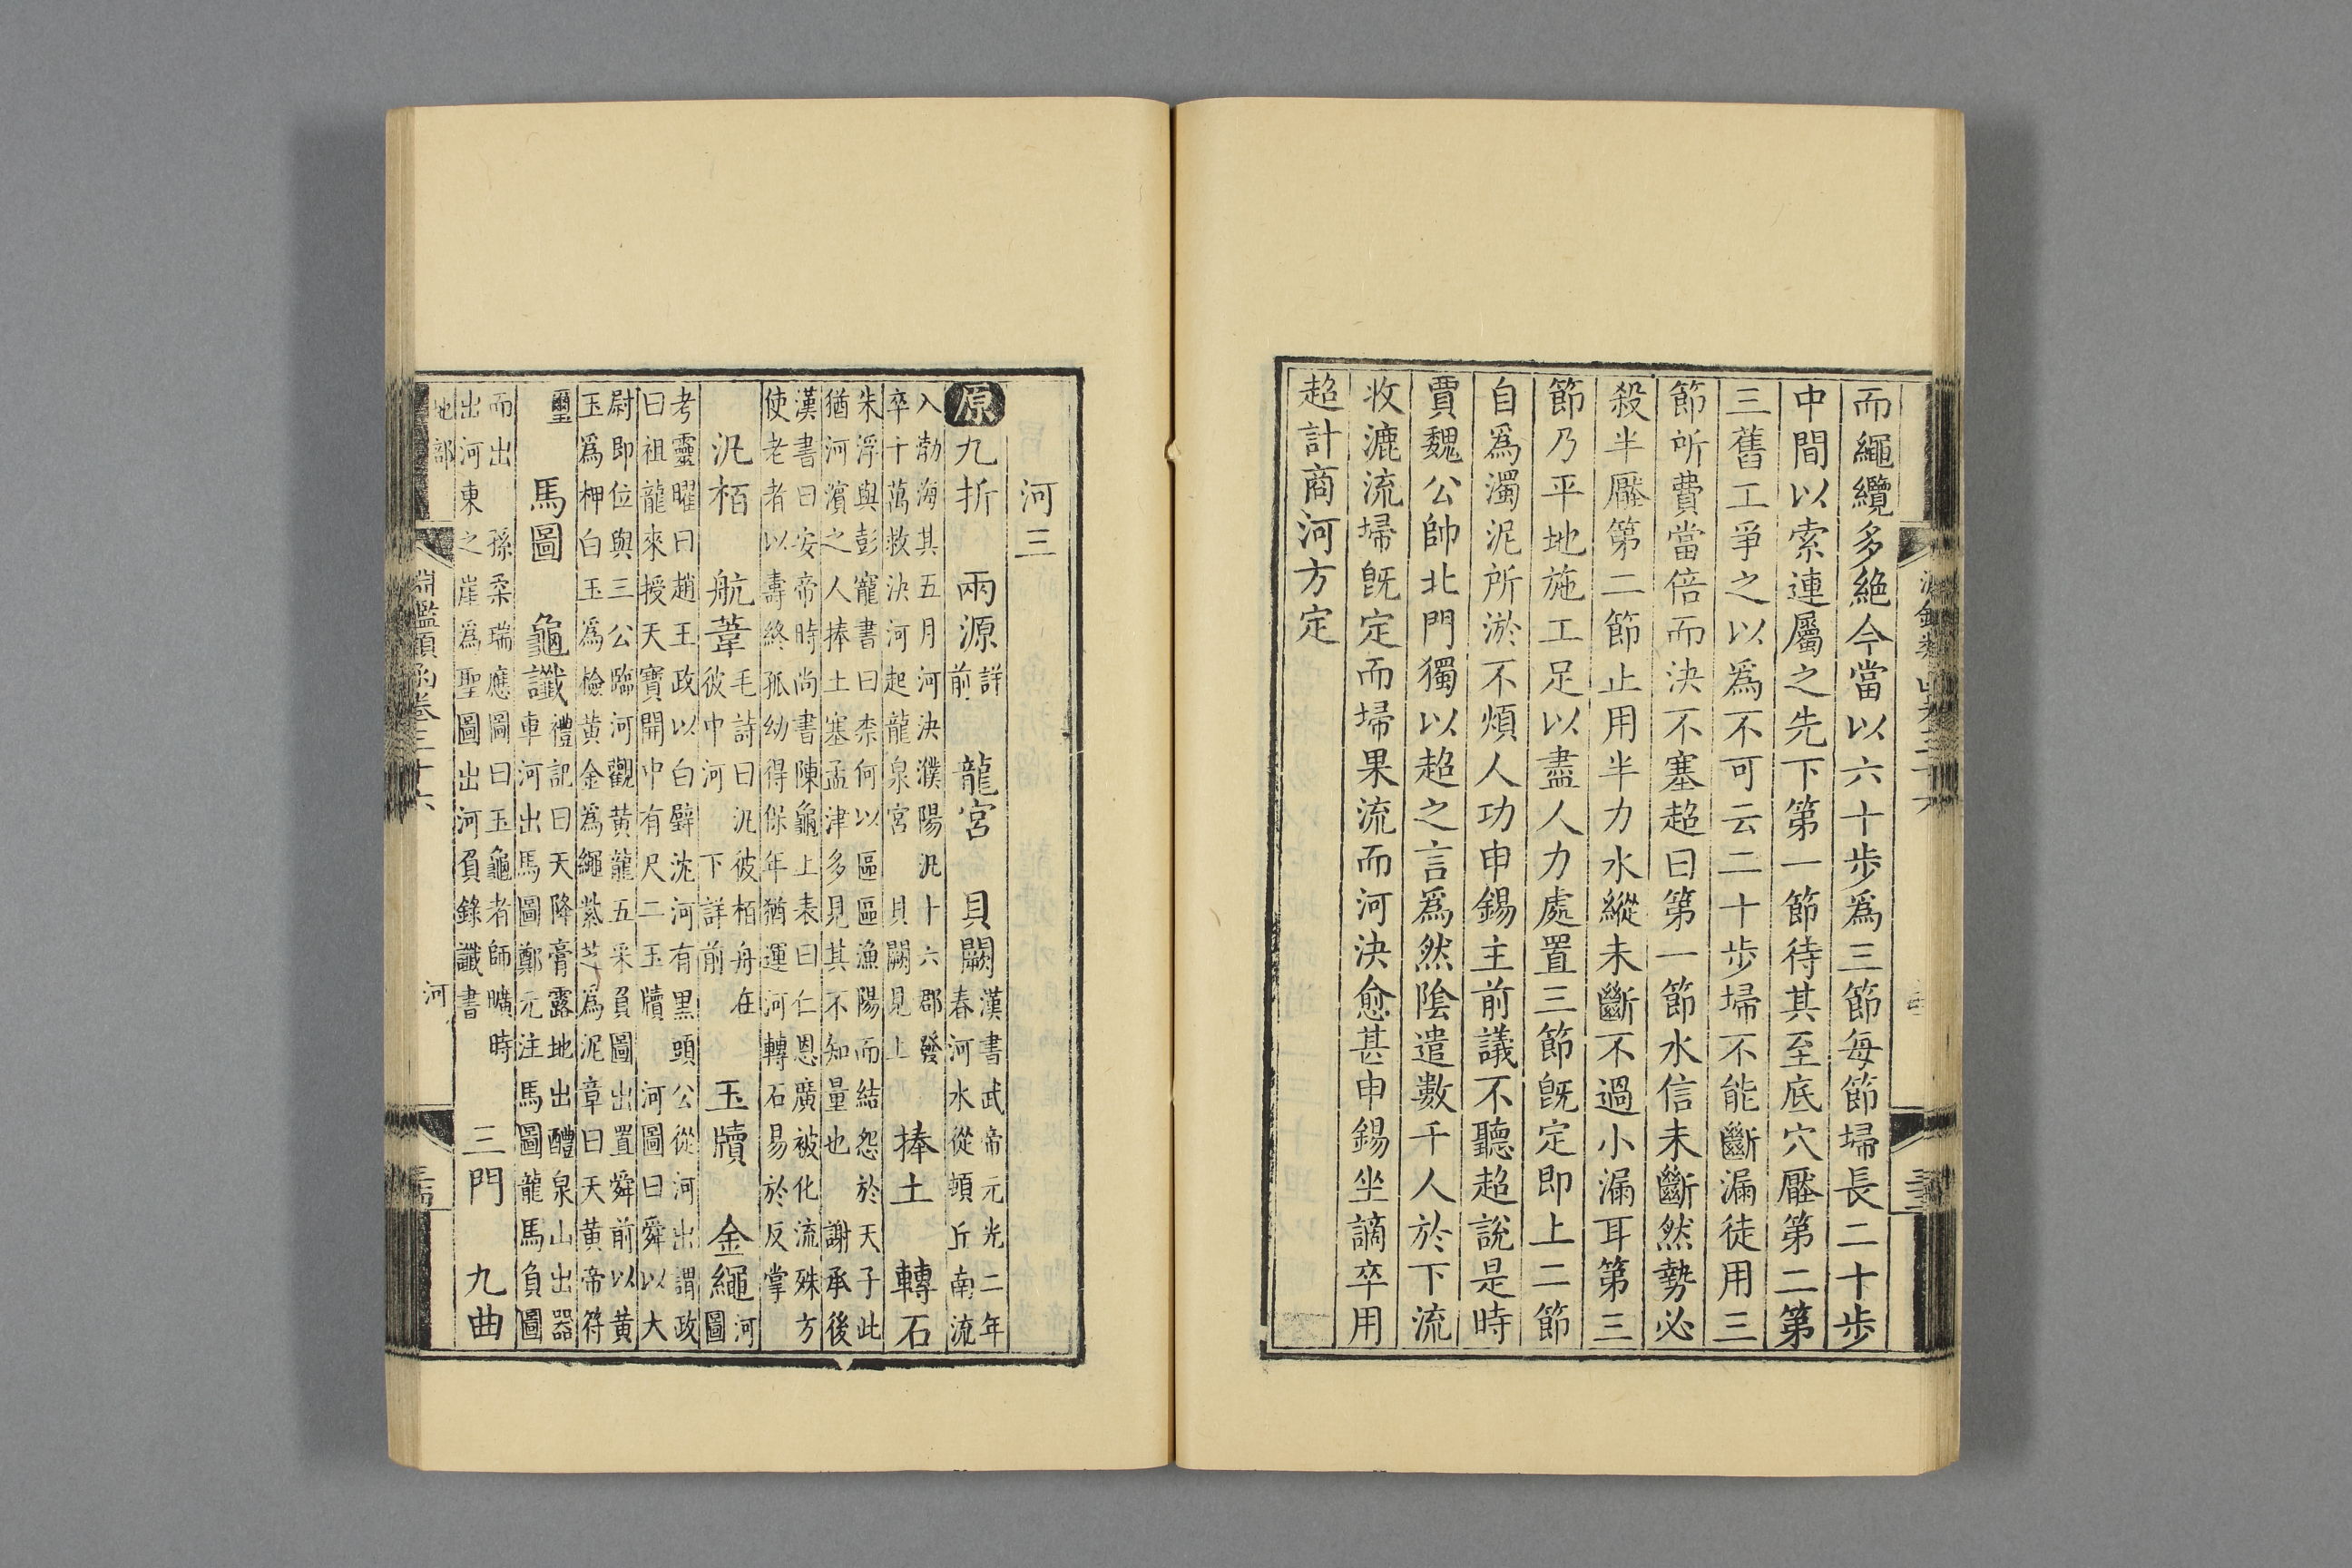 而繩纜多絶今當以六十步爲三節每節埽長二十步
中間以索連屬之先下第一節待其至底穴壓第二第
三舊工爭之以爲不可云二十步埽不能斷漏徒用三
節所費當倍而決不塞超曰第一節水信未斷然勢必
殺半壓第二節止用半力水縱未斷不過小漏耳第三
節乃平地施工足以盡人力處置三節旣定即上二節
自爲濁泥所淤不煩人功申錫主前議不聽超說是時
賈魏公帥北門獨以超之言爲然陰遣數千人於下流
收漉流埽旣定而埽果流而河決愈甚申錫坐謫卒用
超計商河方定
河三
原九折 兩源詳前 龍宮 貝闕漢書武帝元光二年春河水從頓丘南流
入渤海其五月河決濮陽汎十六郡發卒十萬救決河起龍泉宮 貝闕見上 捧土 轉石
朱浮與彭寵書曰柰何以區區漁陽而結怨於天子此猶河濱之人捧土塞孟津多見其不知量也 謝承後
漢書曰安帝時尚書陳龜上表曰仁恩廣被化流殊方使老者以壽終孤幼得保年猶運河轉石易於反掌
汎栢 航葦毛詩曰汎彼栢舟在彼中河 下詳前 玉牘 金繩河圖
考靈曜曰趙王政以白璧沈河有黑頭公從河出謂政曰祖龍來授天寶開中有尺二玉牘 河圖曰舜以大
尉即位與三公臨河觀黄龍五采負圖出置舜前以黄玉爲柙白玉爲檢黄金爲繩紫芝爲泥章曰天黄帝符
璽 馬圖 龜讖禮記曰天降膏露地出醴泉山出器車河出馬圖鄭元注馬圖龍馬負圖
而出 孫柔瑞應圖曰玉龜者師曠時出河東之崖爲聖圖出河負錄讖書 三門 九曲
地部 淵鑑類函卷三十六 河